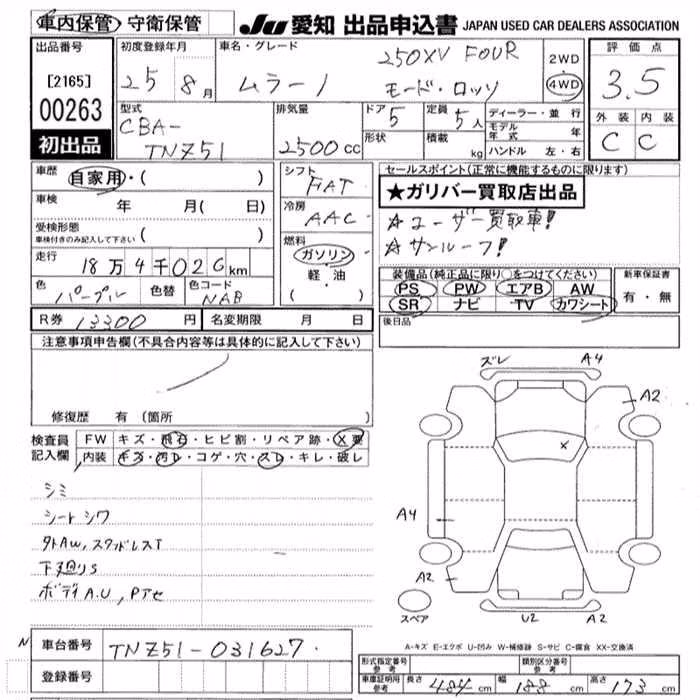 車内保管・守衛保管
JU 愛知 出品申込書 JAPAN USED CAR DEALERS ASSOCIATION
出品番号
[2165]
00263
初出品
初度登録年月
25 8月
車名・グレード
250XV FOUR
ムラーノ モード・ロッソ
2WD
4WD
評価点
3.5
外装 内装
C C
型式
CBA-
TNZ51
排気量
2500 cc
ドア 5
形状
定員 5人
積載 kg
ディーラー・並行
モデル年式 年
ハンドル 左・右
車歴 自家用・( )
車検 年 月( 日)
受検形態
車検付きのみ記入して下さい ( )
走行 18万4千026km
色 パープル 色替 色コード NAB
シフト FAT
冷房 AAC
燃料
ガソリン
・軽・油
( )
セールスポイント(正常に機能するものに限ります)
★ガリバー買取店出品
☆ユーザー買取車!
☆サンルーフ!
装備品(純正品に限り○をつけてください)
PS PW エアB AW
SR ナビ TV カワシート
新車保証書
有・無
後日品
R券 13300円 名変期限 月 日
注意事項申告欄(不具合内容等は具体的に記入して下さい)
修復歴 有(箇所 )
検査員記入欄
FW キズ・飛石・ヒビ割・リペア跡・X要
内装 キズ・汚レ・コゲ・穴・スレ・キレ・破レ
シミ
シートシワ
外AW,スタッドレスT
下廻りS
ボディA.U,Pアセ
ズレ A4
A2
X
A4
A2
スペア
U2 A2
A-キズ E-エクボ U-凹み W-補修跡 S-サビ C-腐食 XX-交換済
N
車台番号 TNZ51-031627
登録番号
型式指定番号 参考
類別区分番号 参考
車庫証明用 参考 長さ 484cm 幅 188cm 高さ 173cm